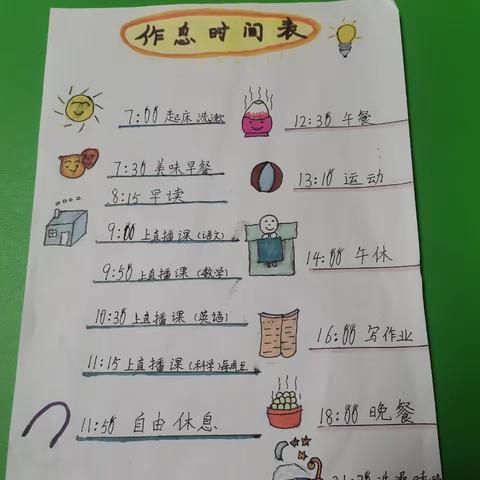 作息时间表
7:00 起床洗漱
7:30 美味早餐
8:15 早读
9:00 上直播课(语文)
9:50 上直播课(数学)
10:30 上直播课(英语)
11:15 上直播课(科学)每周五
11:50 自由休息
12:30 午餐
13:10 运动
14:00 午休
16:00 写作业
18:00 晚餐